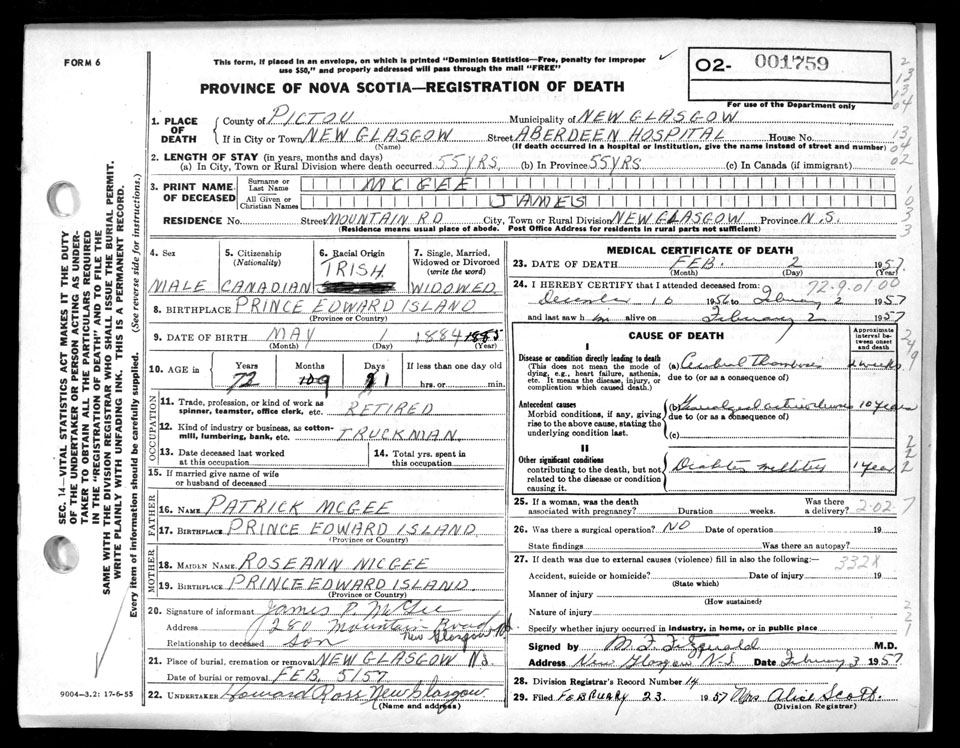 FORM 6
This form, if placed in an envelope, on which is printed "Dominion Statistics—Free, penalty for improper
use $50," and properly addressed will pass through the mail "FREE"
02- 001759
For use of the Department only
PROVINCE OF NOVA SCOTIA—REGISTRATION OF DEATH
1. PLACE OF DEATH County of PICTOU Municipality of NEW GLASGOW
If in City or Town NEW GLASGOW Street ABERDEEN HOSPITAL House No.
(Name) (If death occurred in a hospital or institution, give the name instead of street and number)
2. LENGTH OF STAY (in years, months and days)
(a) In City, Town or Rural Division where death occurred 55 YRS. (b) In Province 55 YRS (c) In Canada (if immigrant)
3. PRINT NAME OF DECEASED Surname or Last Name MCGEE
All Given or Christian Names JAMES
RESIDENCE No. Street MOUNTAIN RD City, Town or Rural Division NEW GLASGOW Province N.S.
(Residence means usual place of abode. Post Office Address for residents in rural parts not sufficient)
4. Sex MALE
5. Citizenship (Nationality) CANADIAN
6. Racial Origin IRISH
7. Single, Married, Widowed or Divorced (write the word) WIDOWED
8. BIRTHPLACE PRINCE EDWARD ISLAND
(Province or Country)
9. DATE OF BIRTH MAY 1884 1885
(Month) (Day) (Year)
10. AGE in Years Months Days If less than one day old
72 9 1 hrs. or min.
OCCUPATION
11. Trade, profession, or kind of work as spinner, teamster, office clerk, etc. RETIRED
12. Kind of industry or business, as cotton-mill, lumbering, bank, etc. TRUCKMAN.
13. Date deceased last worked at this occupation
14. Total yrs. spent in this occupation
15. If married give name of wife or husband of deceased
FATHER
16. NAME PATRICK MCGEE
17. BIRTHPLACE PRINCE EDWARD ISLAND
(Province or Country)
MOTHER
18. MAIDEN NAME ROSEANN MCGEE
19. BIRTHPLACE PRINCE EDWARD ISLAND.
(Province or Country)
20. Signature of informant James P. McGee
Address 280 Mountain Road
New Glasgow NS
Relationship to deceased son
21. Place of burial, cremation or removal NEW GLASGOW N.S.
Date of burial or removal FEB. 5/57
22. UNDERTAKER Howard Rose New Glasgow
(Name and address)
MEDICAL CERTIFICATE OF DEATH
23. DATE OF DEATH FEB. 2 1957
(Month) (Day) (Year)
24. I HEREBY CERTIFY that I attended deceased from: 72-9-01-00
December 10 1956 to February 2 1957
and last saw him alive on February 2 1957
CAUSE OF DEATH
Approximate interval between onset and death
I
Disease or condition directly leading to death
(This does not mean the mode of dying, e.g., heart failure, asthenia, etc. It means the disease, injury, or complication which caused death.)
(a) Cerebral Thrombosis 2 weeks
due to (or as a consequence of)
Antecedent causes
Morbid conditions, if any, giving rise to the above cause, stating the underlying condition last.
(b) Generalized arteriosclerosis 10 years
due to (or as a consequence of)
(c)
II
Other significant conditions
contributing to the death, but not related to the disease or condition causing it.
Diabetes mellitus 1 year
25. If a woman, was the death associated with pregnancy? Duration weeks. Was there a delivery? 2-02-7
26. Was there a surgical operation? NO Date of operation 19
State findings Was there an autopsy?
27. If death was due to external causes (violence) fill in also the following:— 332X
Accident, suicide or homicide? Date of injury 19
(State which)
Manner of injury
(How sustained)
Nature of injury
Specify whether injury occurred in industry, in home, or in public place
Signed by M. F. Fitzgerald M.D.
Address New Glasgow N.S. Date February 3 1957
28. Division Registrar's Record Number 14
29. Filed FEBRUARY 23. 1957 Mrs Alice Scott.
(Division Registrar)
SEC. 14—VITAL STATISTICS ACT MAKES IT THE DUTY
OF THE UNDERTAKER OR PERSON ACTING AS UNDER-
TAKER TO OBTAIN ALL THE PARTICULARS REQUIRED
IN THE "REGISTRATION OF DEATH" AND TO FILE THE
SAME WITH THE DIVISION REGISTRAR WHO SHALL ISSUE THE BURIAL PERMIT.
WRITE PLAINLY WITH UNFADING INK. THIS IS A PERMANENT RECORD.
Every item of information should be carefully supplied. (See reverse side for instructions.)
9004-3.2: 17-6-55